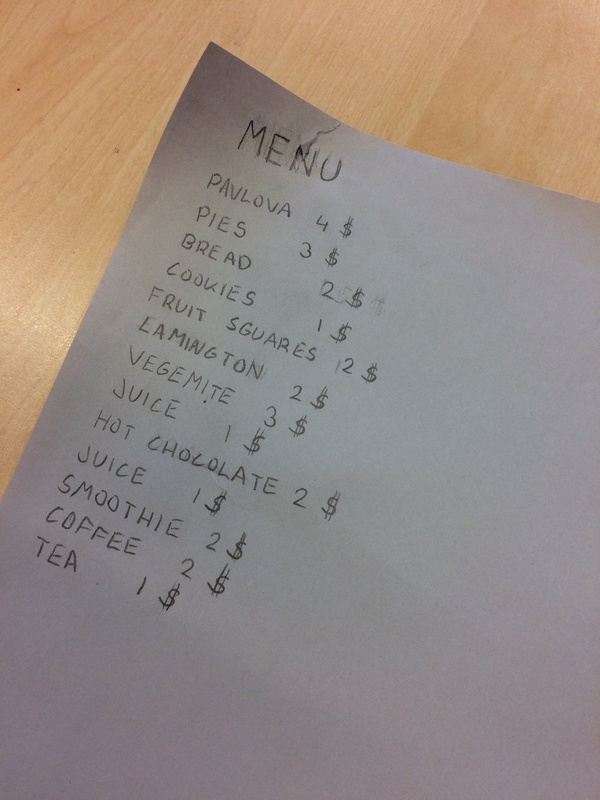 MENU
PAVLOVA 4 $
PIES 3 $
BREAD 2 $
COOKIES 1 $
FRUIT SGUARES 2 $
LAMINGTON 2 $
VEGEMITE 3 $
JUICE 1 $
HOT CHOCOLATE 2 $
JUICE 1 $
SMOOTHIE 2 $
COFFEE 2 $
TEA 1 $